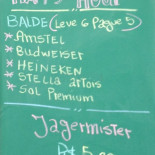 HAPPY HOUR
BALDE (Leve 6 Pague 5)
* AMSTEL
* Budweiser
* HEINEKEN
* STELLA ARTOIS
* Sol Premium
Jagermister